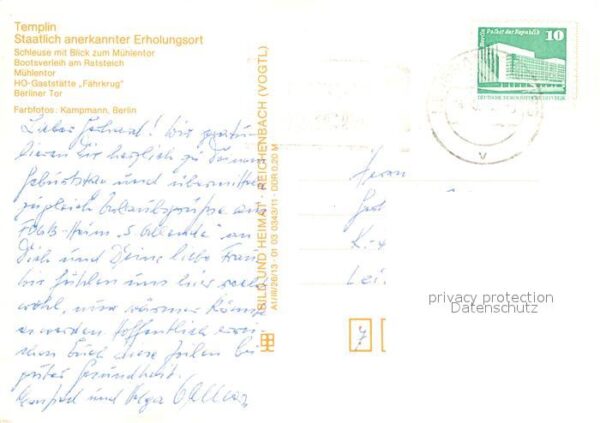 Templin
Staatlich anerkannter Erholungsort
Schleuse mit Blick zum Mühlentor
Bootsverleih am Ratsteich
Mühlentor
HO-Gaststätte „Fährkrug“
Berliner Tor
Farbfotos: Kampmann, Berlin
Lieber Helmut! Wir gratu-
lieren Dir herzlich zu Deinem
Geburtstag und übermitteln
zugleich Urlaubsgrüße aus
FDGB-Heim „S. Allende“ an
Dich und Deine liebe Frau
Wir fühlen uns hier sehr
wohl, nur wärmer könnte
es werden. Hoffentlich errei-
chen Euch diese Zeilen bei
guter Gesundheit.
und Helga
BILD UND HEIMAT · REICHENBACH (VOGTL)
A1/III/26/13 · 01 03 0343/11 · DDR 0,20 M
Berlin Palast der Republik
10
DEUTSCHE DEMOKRATISCHE REPUBLIK
v
Herrn
Lei
7
privacy protection
Datenschutz